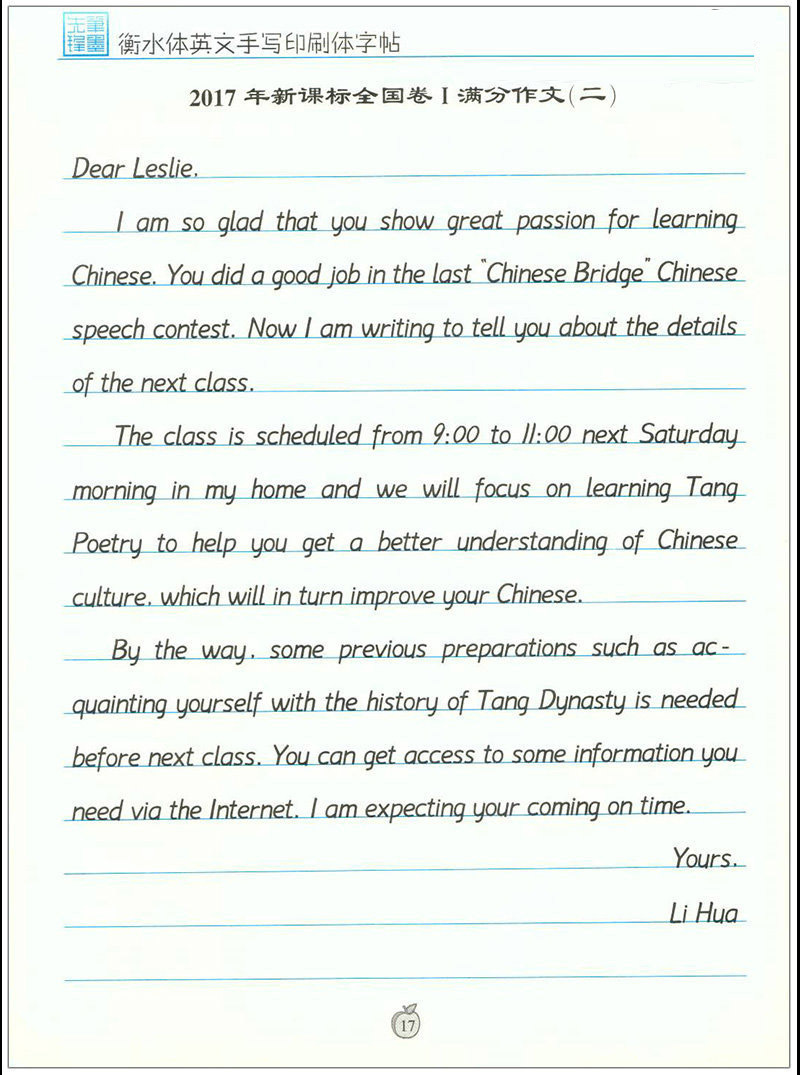 筆墨先鋒
衡水体英文手写印刷体字帖
2017 年新课标全国卷 I 满分作文(二)
Dear Leslie,
I am so glad that you show great passion for learning
Chinese. You did a good job in the last "Chinese Bridge" Chinese
speech contest. Now I am writing to tell you about the details
of the next class.
The class is scheduled from 9:00 to 11:00 next Saturday
morning in my home and we will focus on learning Tang
Poetry to help you get a better understanding of Chinese
culture, which will in turn improve your Chinese.
By the way, some previous preparations such as ac-
quainting yourself with the history of Tang Dynasty is needed
before next class. You can get access to some information you
need via the Internet. I am expecting your coming on time.
Yours,
Li Hua
17